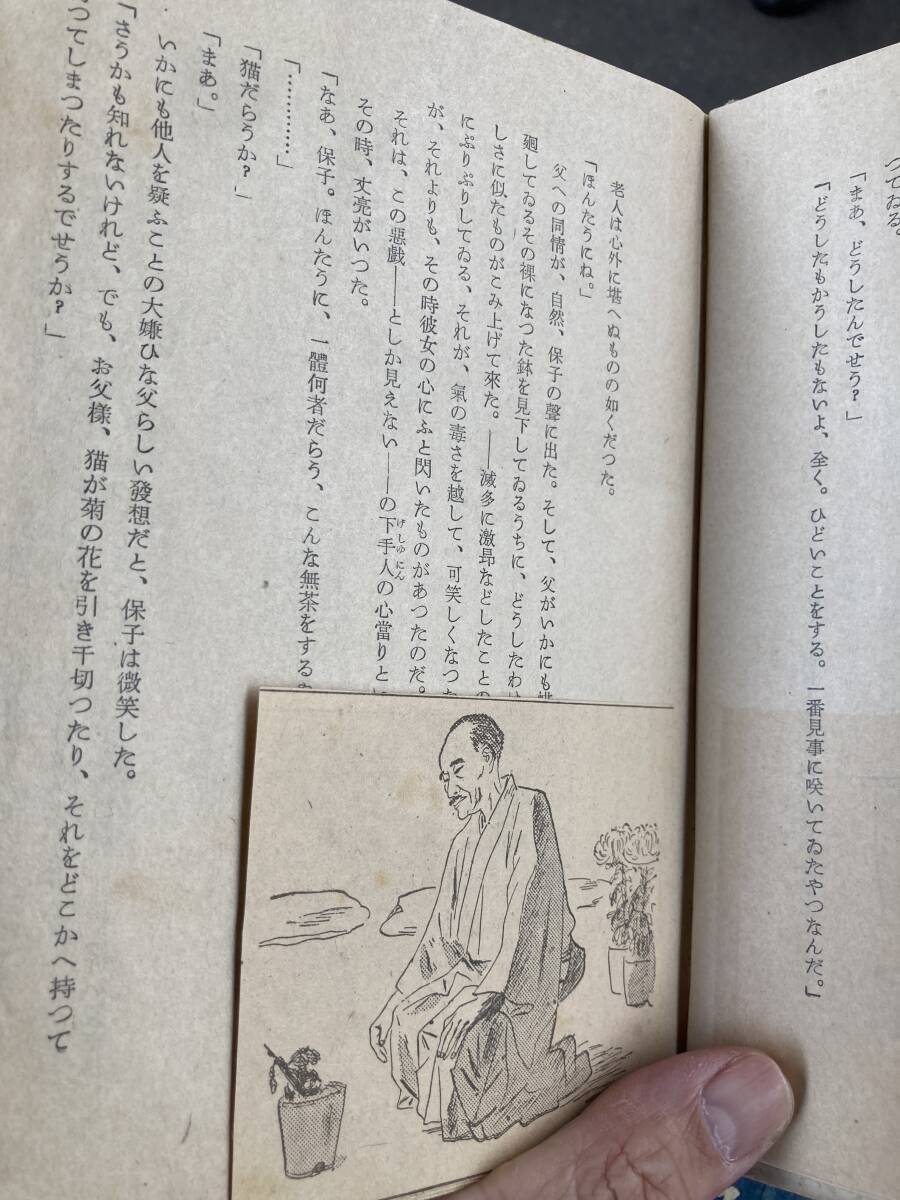 つてゐる。
「まあ、どうしたんでせう？」
「どうしたもかうしたもないよ、全く。ひどいことをする。一番見事に咲いてゐたやつなんだ。」
老人は心外に堪へぬものの如くだつた。
「ほんたうにね。」
父への同情が、自然、保子の聲に出た。そして、父がいかにも
廻してゐるその裸になつた鉢を見下してゐるうちに、どうしたわけ
しさに似たものがこみ上げて來た。――滅多に激昻などしたことの
にぷりぷりしてゐる、それが、氣の毒さを越して、可笑しくなつた
が、それよりも、その時彼女の心にふと閃いたものがあつたのだ。
それは、この惡戲――としか見えない――の下手人の心當りと
げしゆにん
その時、丈亮がいつた。
「なあ、保子。ほんたうに、一體何者だらう、こんな無茶をする
「…………」
「猫だらうか？」
「まあ。」
いかにも他人を疑ふことの大嫌ひな父らしい發想だと、保子は微笑した。
「さうかも知れないけれど、でも、お父樣、猫が菊の花を引き千切つたり、それをどこかへ持つて
つてしまつたりするでせうか？」